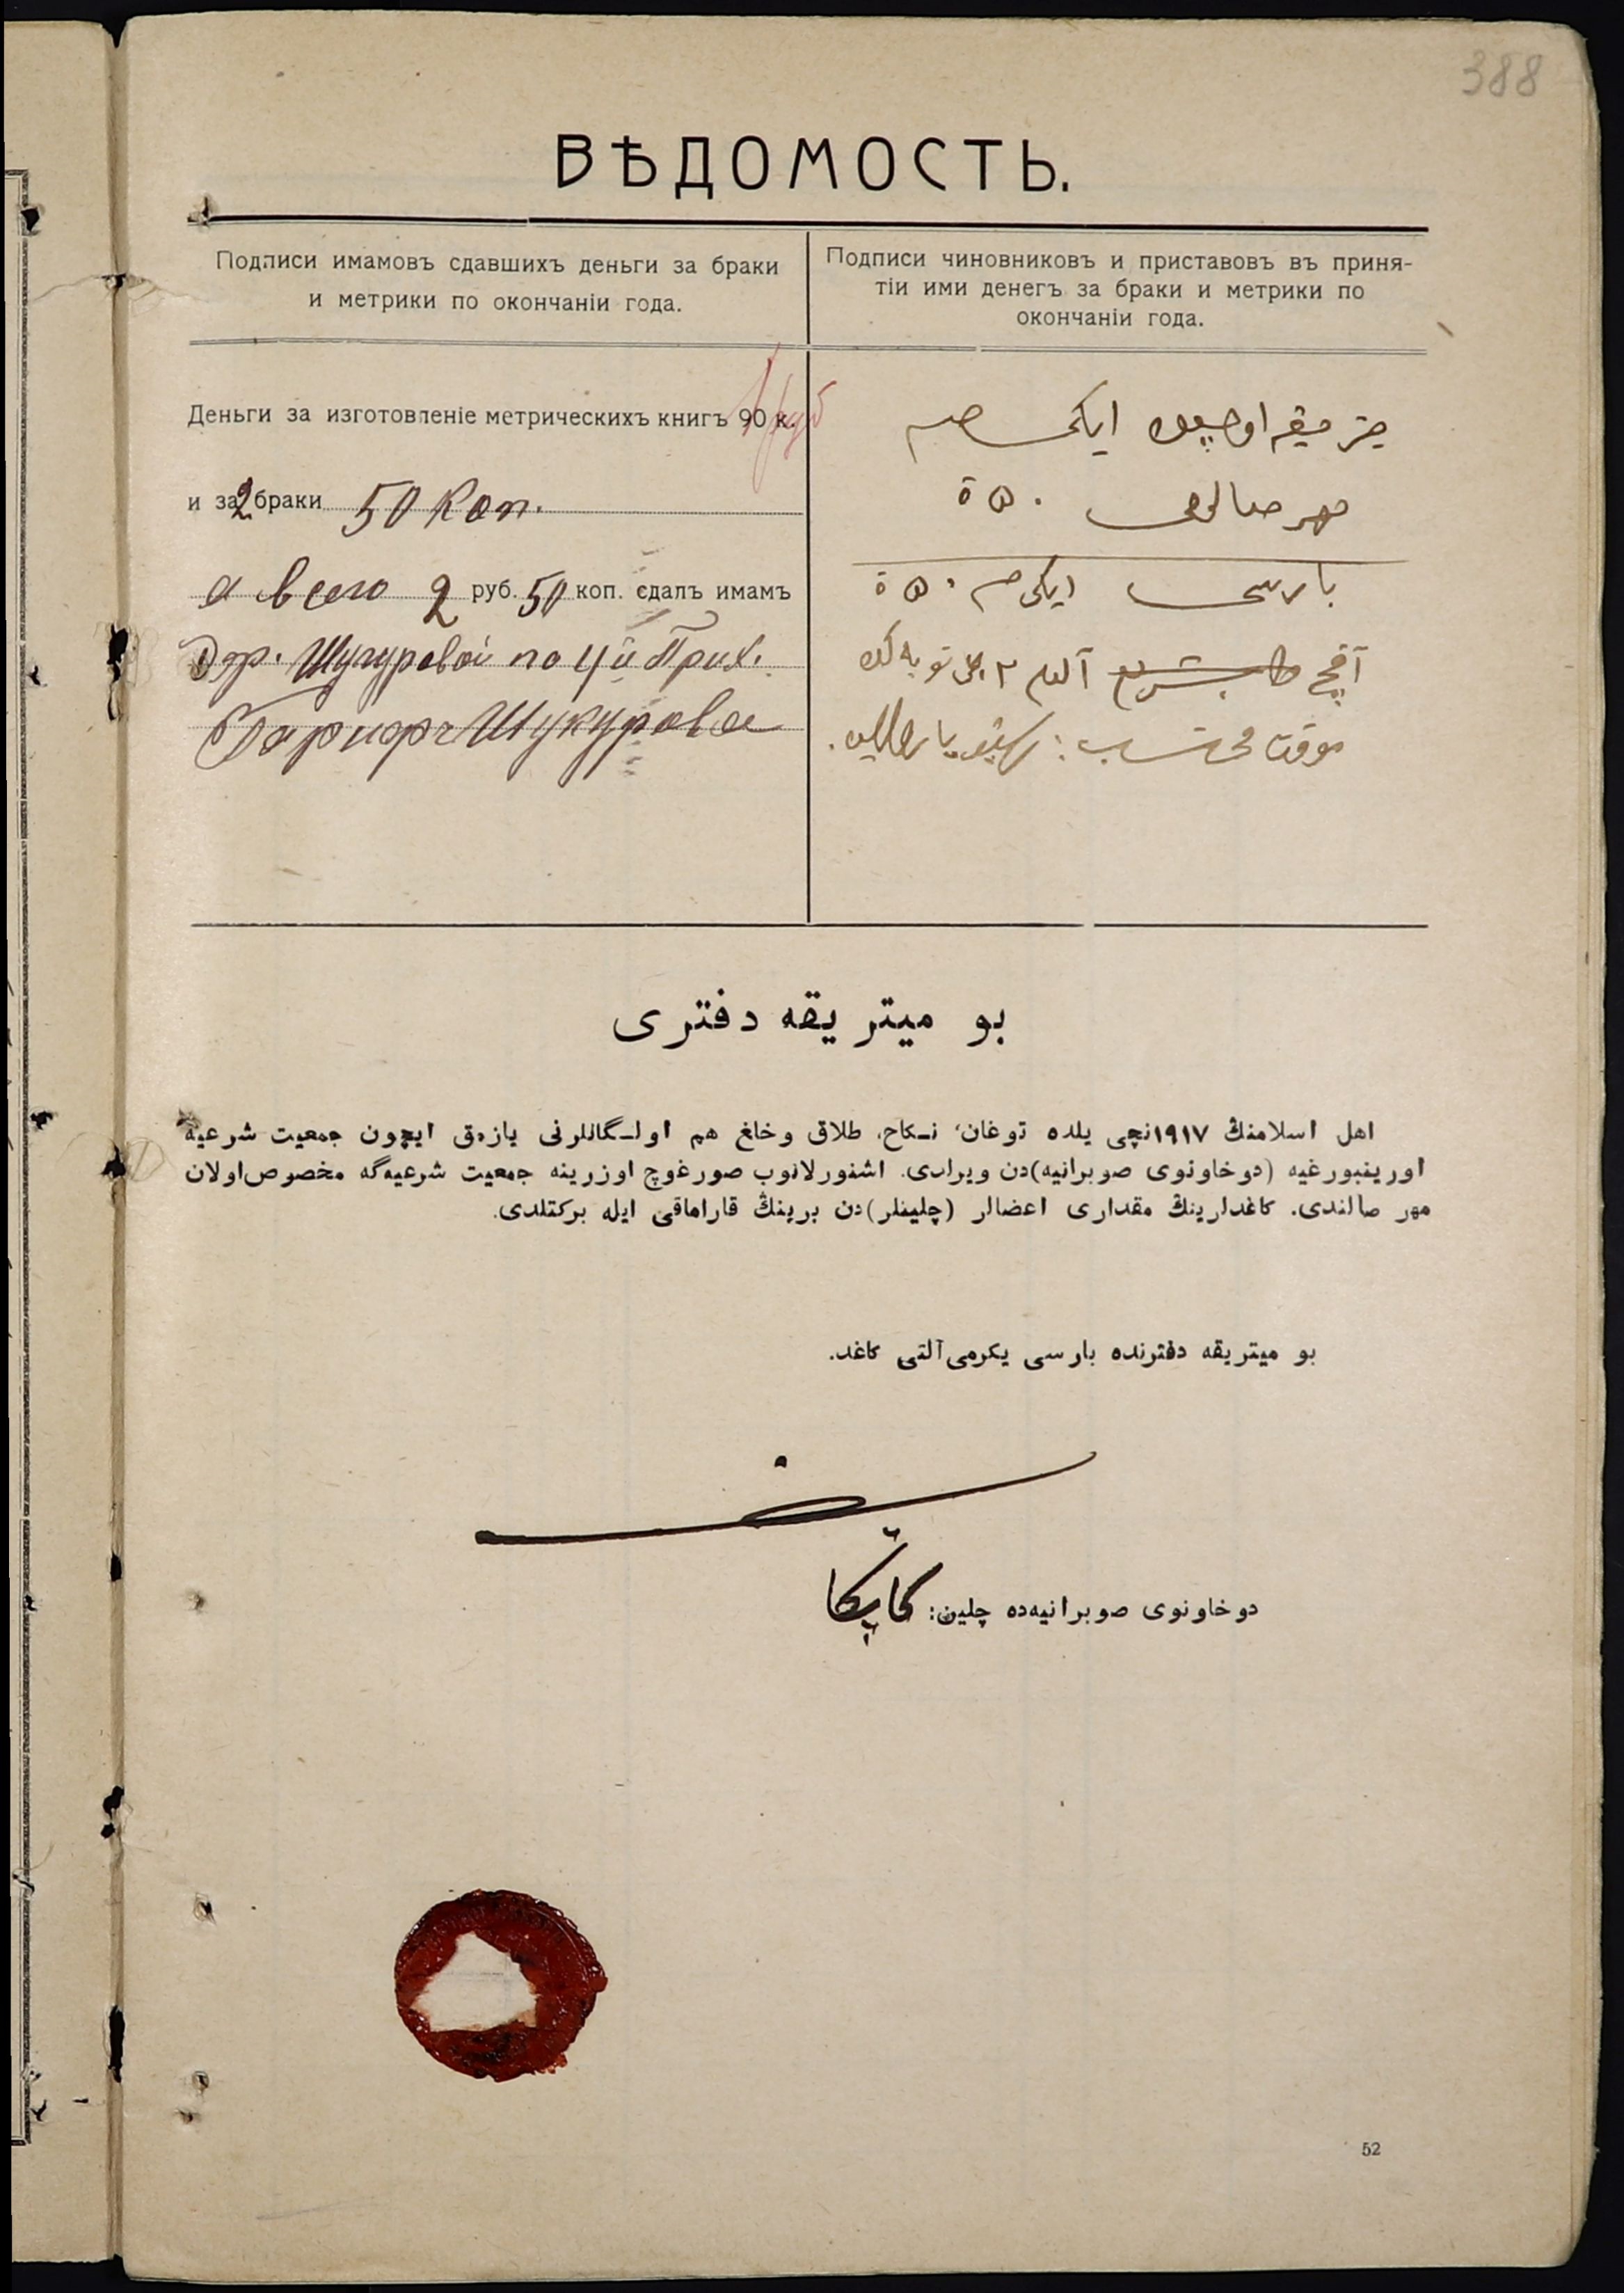 388
ВѢДОМОСТЬ.
Подписи имамовъ сдавшихъ деньги за браки
и метрики по окончаніи года.
Подписи чиновниковъ и приставовъ въ приня-
тіи ими денегъ за браки и метрики по
окончаніи года.
Деньги за изготовленіе метрическихъ книгъ 90 к.
и за 2 браки 50 Коп.
а всего 2 руб. 50 коп. сдалъ имамъ
Дер. Шугуровой по 4й Прих.
Шукурова
ايكى
مهر ٥٠
بارسى ايكى ٥٠
آقچه آلدم
موقت محتسب:
بو ميتريقه دفترى
اهل اسلامنڭ ١٩١٧نچى يلده توغان، نـكاح، طلاق وخلغ هم اولـگانلرنى يازمق ايچون جمعيت شرعيه
اورينبورغيه (دوخاونوى صوبرانيه)دن ويرلدى. اشنورلانوب صورغوچ اوزرينه جمعيت شرعيه‌گه مخصوص اولان
مهر صالندى. كاغدلارينڭ مقدارى اعضالر (چلينلر)دن برينڭ قاراماقى ايله بركتلدى.
بو ميتريقه دفترنده بارسى يكرمى آلتى كاغد.
دوخاونوى صوبرانيه‌ده چلين:
52